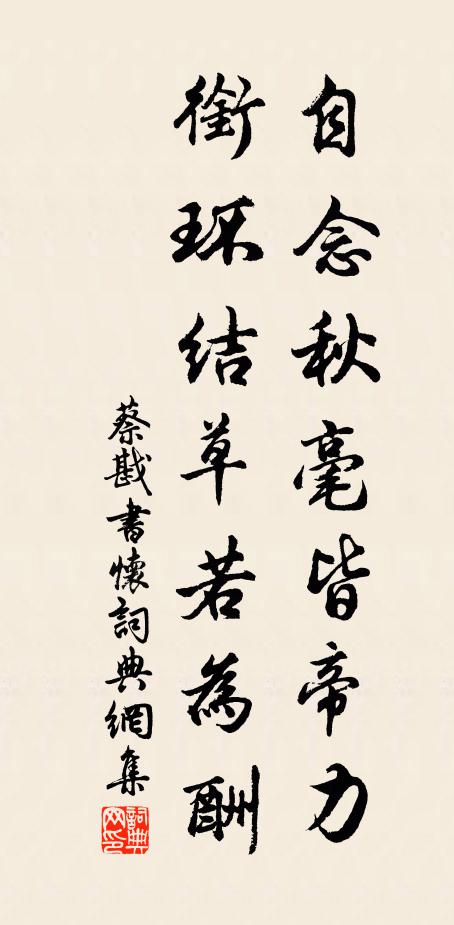 自念秋毫皆帝力
銜环结草若為酬
蔡戡書懷詞典網集
詞典网印